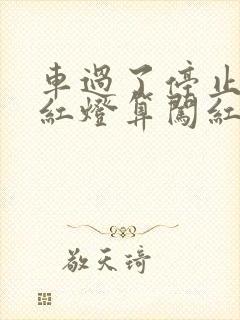 車過了停止
紅燈算闖紅
敬天琦